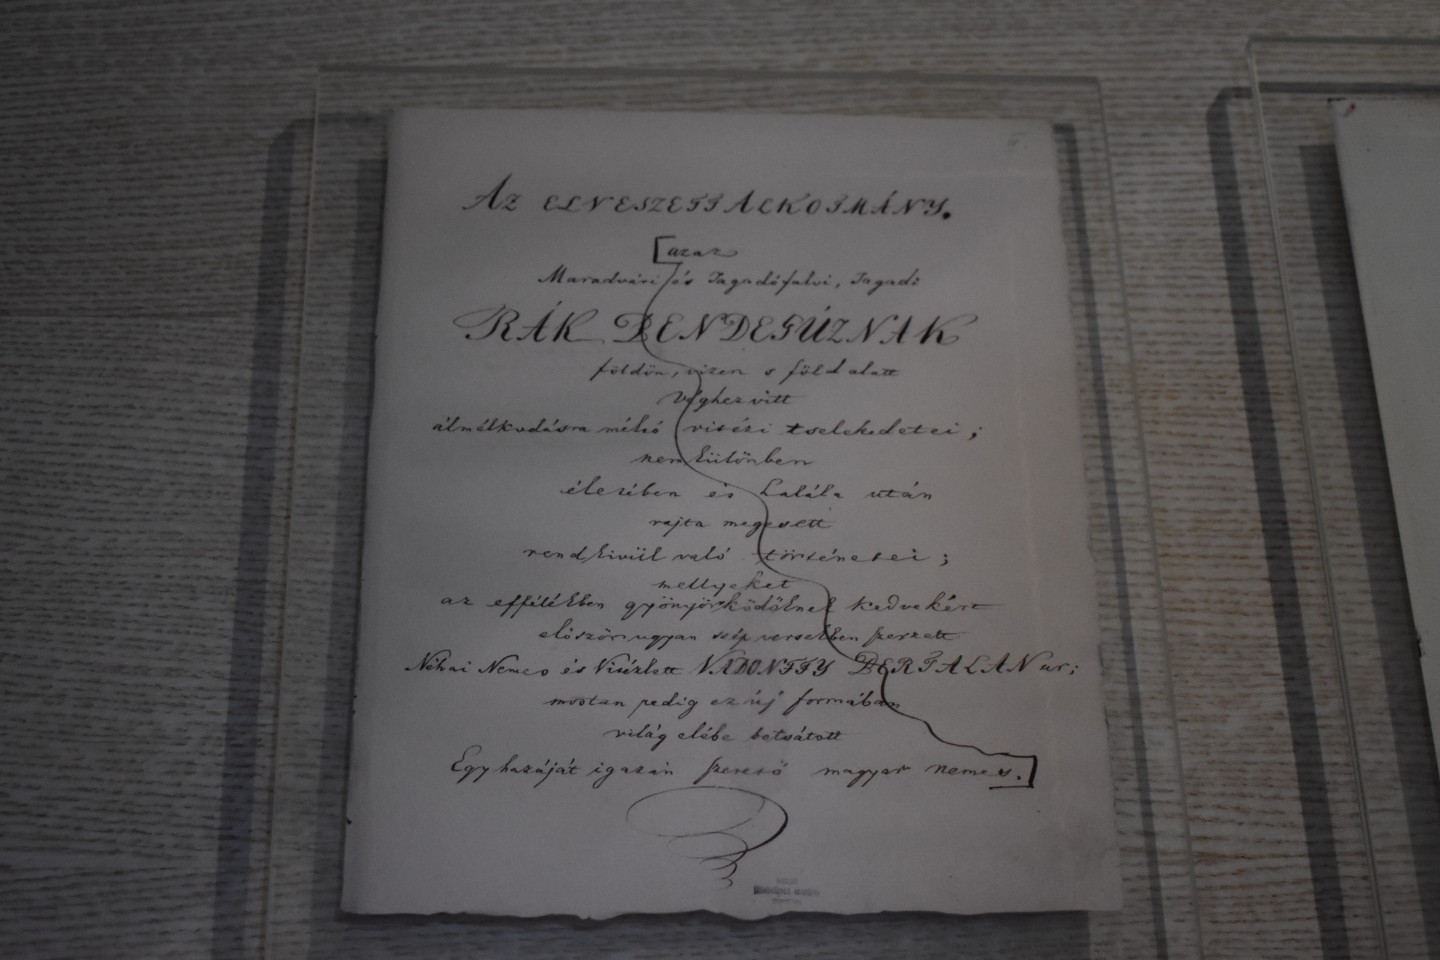 AZ ELVESZETT ALKOTMÁNY.
[azaz
Maradvári és Tagadófalvi, Tagadi
RÁK BENDEGÚZNAK
földön, vizen s föld alatt
véghezvitt
álmélkodásra méltó vitézi tselekedetei;
nemkülönben
életében és halála után
rajta megesett
rendkivül való történetei;
mellyeket
az effélékben gyönyörködőknek kedvekért
először ugyan szép versekben szerzett
Néhai Nemes és Vitézlett VADONFFY BERTALAN ur;
mostan pedig ez új formában
világ elébe botsátott
Egy hazáját igazán szerető magyar nemes.]